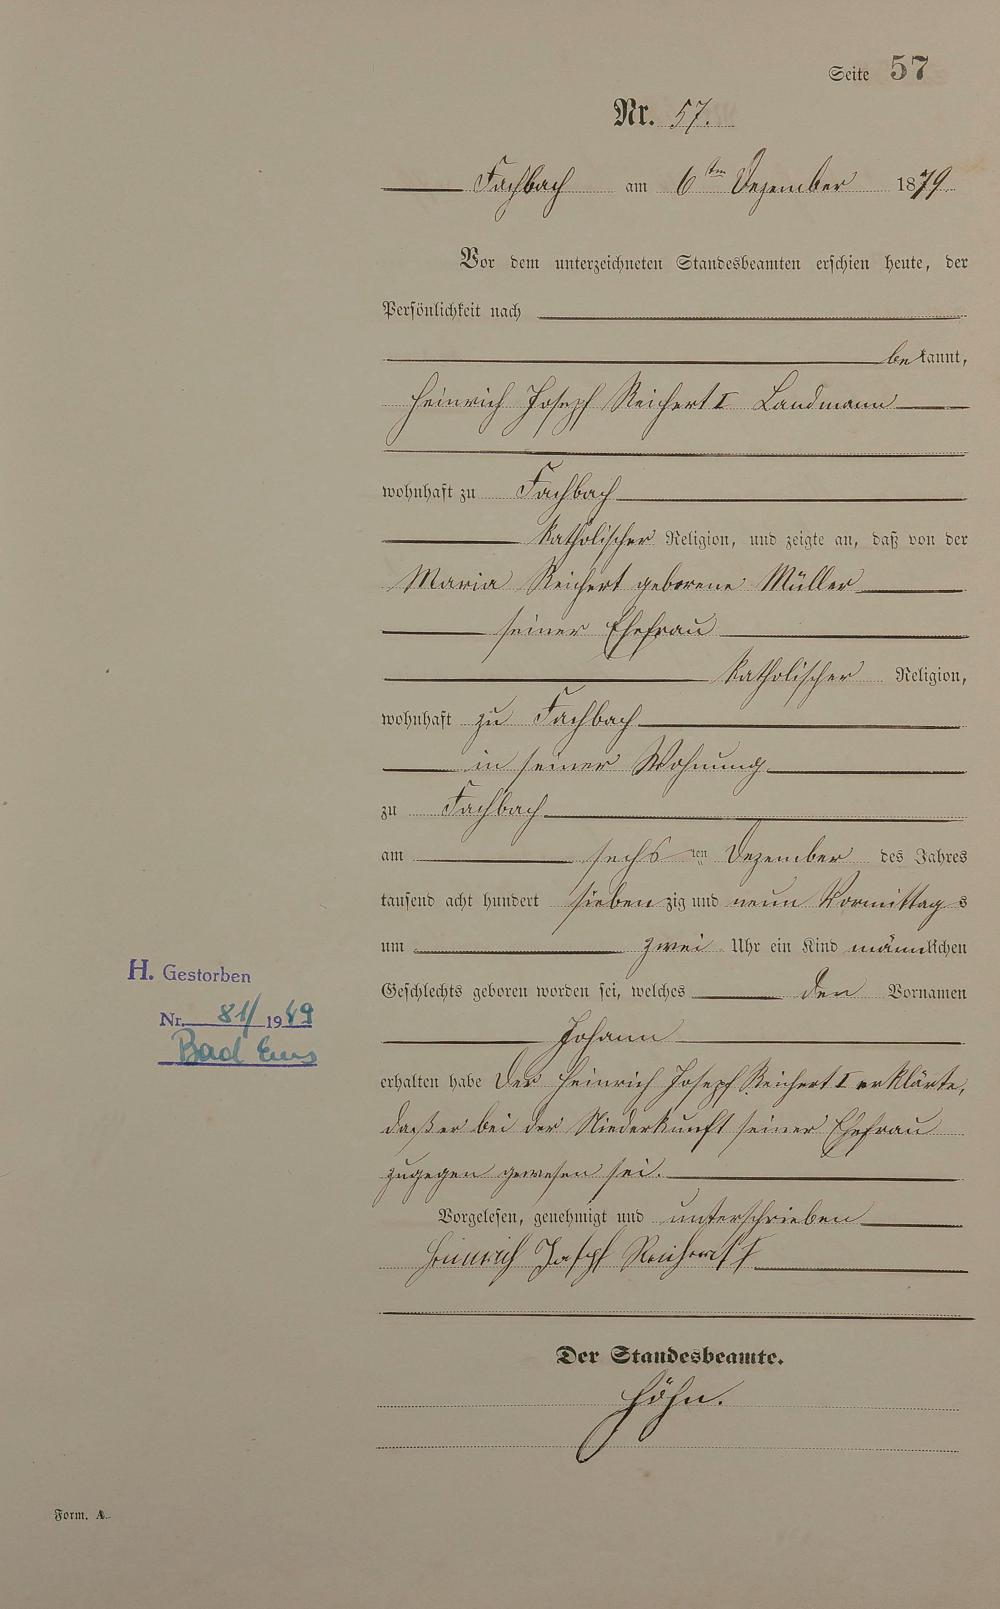 Seite 57
Nr. 57.
Fachbach am 6ten Dezember 1879
Vor dem unterzeichneten Standesbeamten erschien heute, der
Persönlichkeit nach
bekannt,
Heinrich Joseph Reichert I Landmann
wohnhaft zu Fachbach
katholischer Religion, und zeigte an, daß von der
Maria Reichert geborene Müller
seiner Ehefrau
katholischer Religion,
wohnhaft zu Fachbach
in seiner Wohnung
zu Fachbach
am sechsten Dezember des Jahres
tausend acht hundert siebenzig und neun Vormittags
um zwei Uhr ein Kind männlichen
Geschlechts geboren worden sei, welches den Vornamen
Johann
erhalten habe Der Heinrich Joseph Reichert I erklärte,
daß er bei der Niederkunft seiner Ehefrau
zugegen gewesen sei.
Vorgelesen, genehmigt und unterschrieben
Heinrich Joseph Reichert I
Der Standesbeamte.
Höhn.
H. Gestorben
Nr. 81/1949
Bad Ems
Form. A.